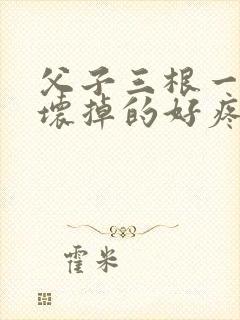 父子三根一
壞掉的好疼
霍米